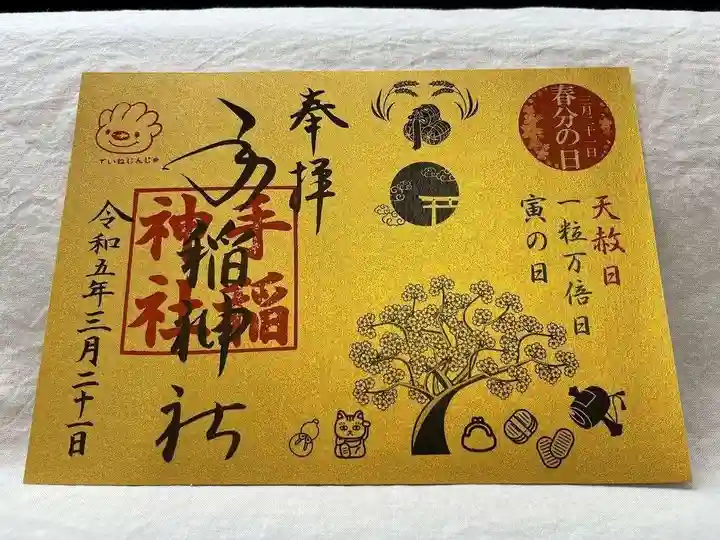 春分の日
三月二十一日
天赦日
一粒万倍日
寅の日
奉拝
手稲神社
手稲
神社
ていねじんじゃ
令和五年三月二十一日